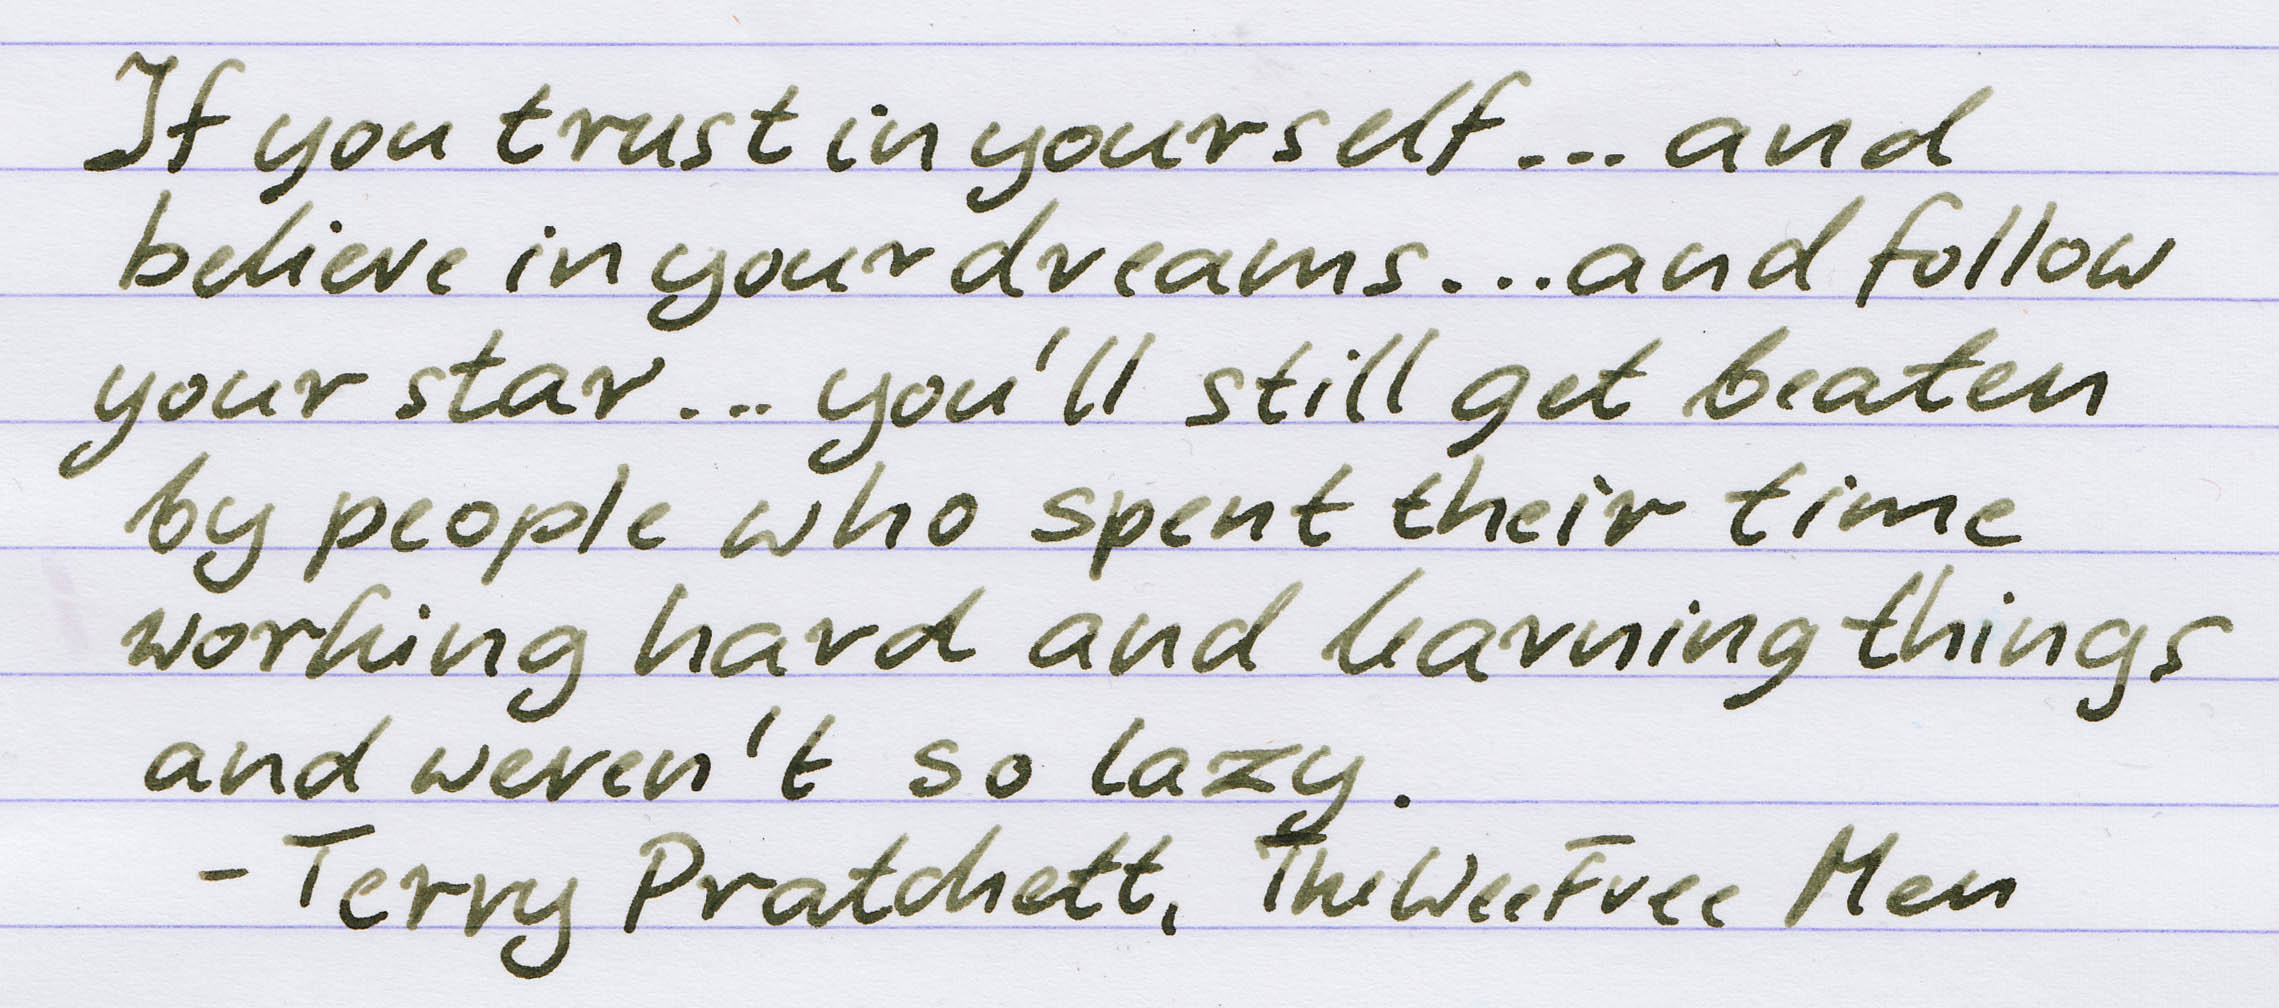 If you trust in yourself... and
believe in your dreams...and follow
your star... you'll still get beaten
by people who spent their time
working hard and learning things
and weren't so lazy.
- Terry Pratchett, The Wee Free Men